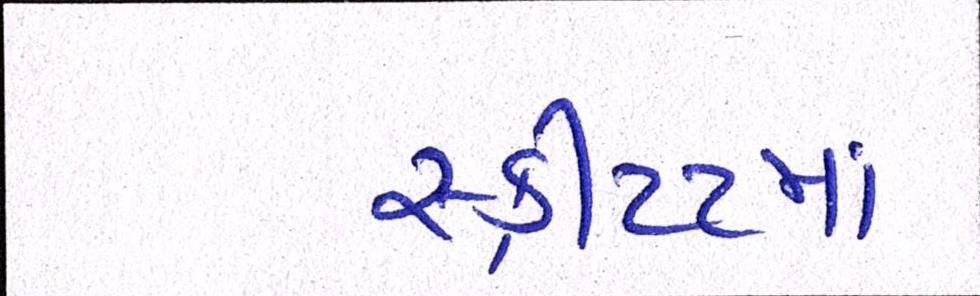 સ્ક્રીટટમાં